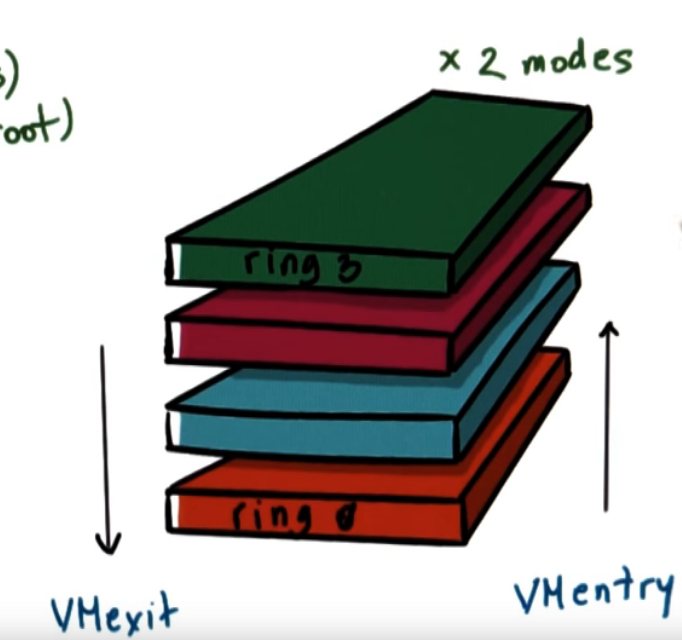 s)
oot)
x 2 modes
ring 3
ring 0
VMexit
VMentry